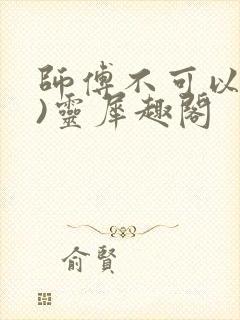 師傅不可以
)靈犀趣閣
俞賢